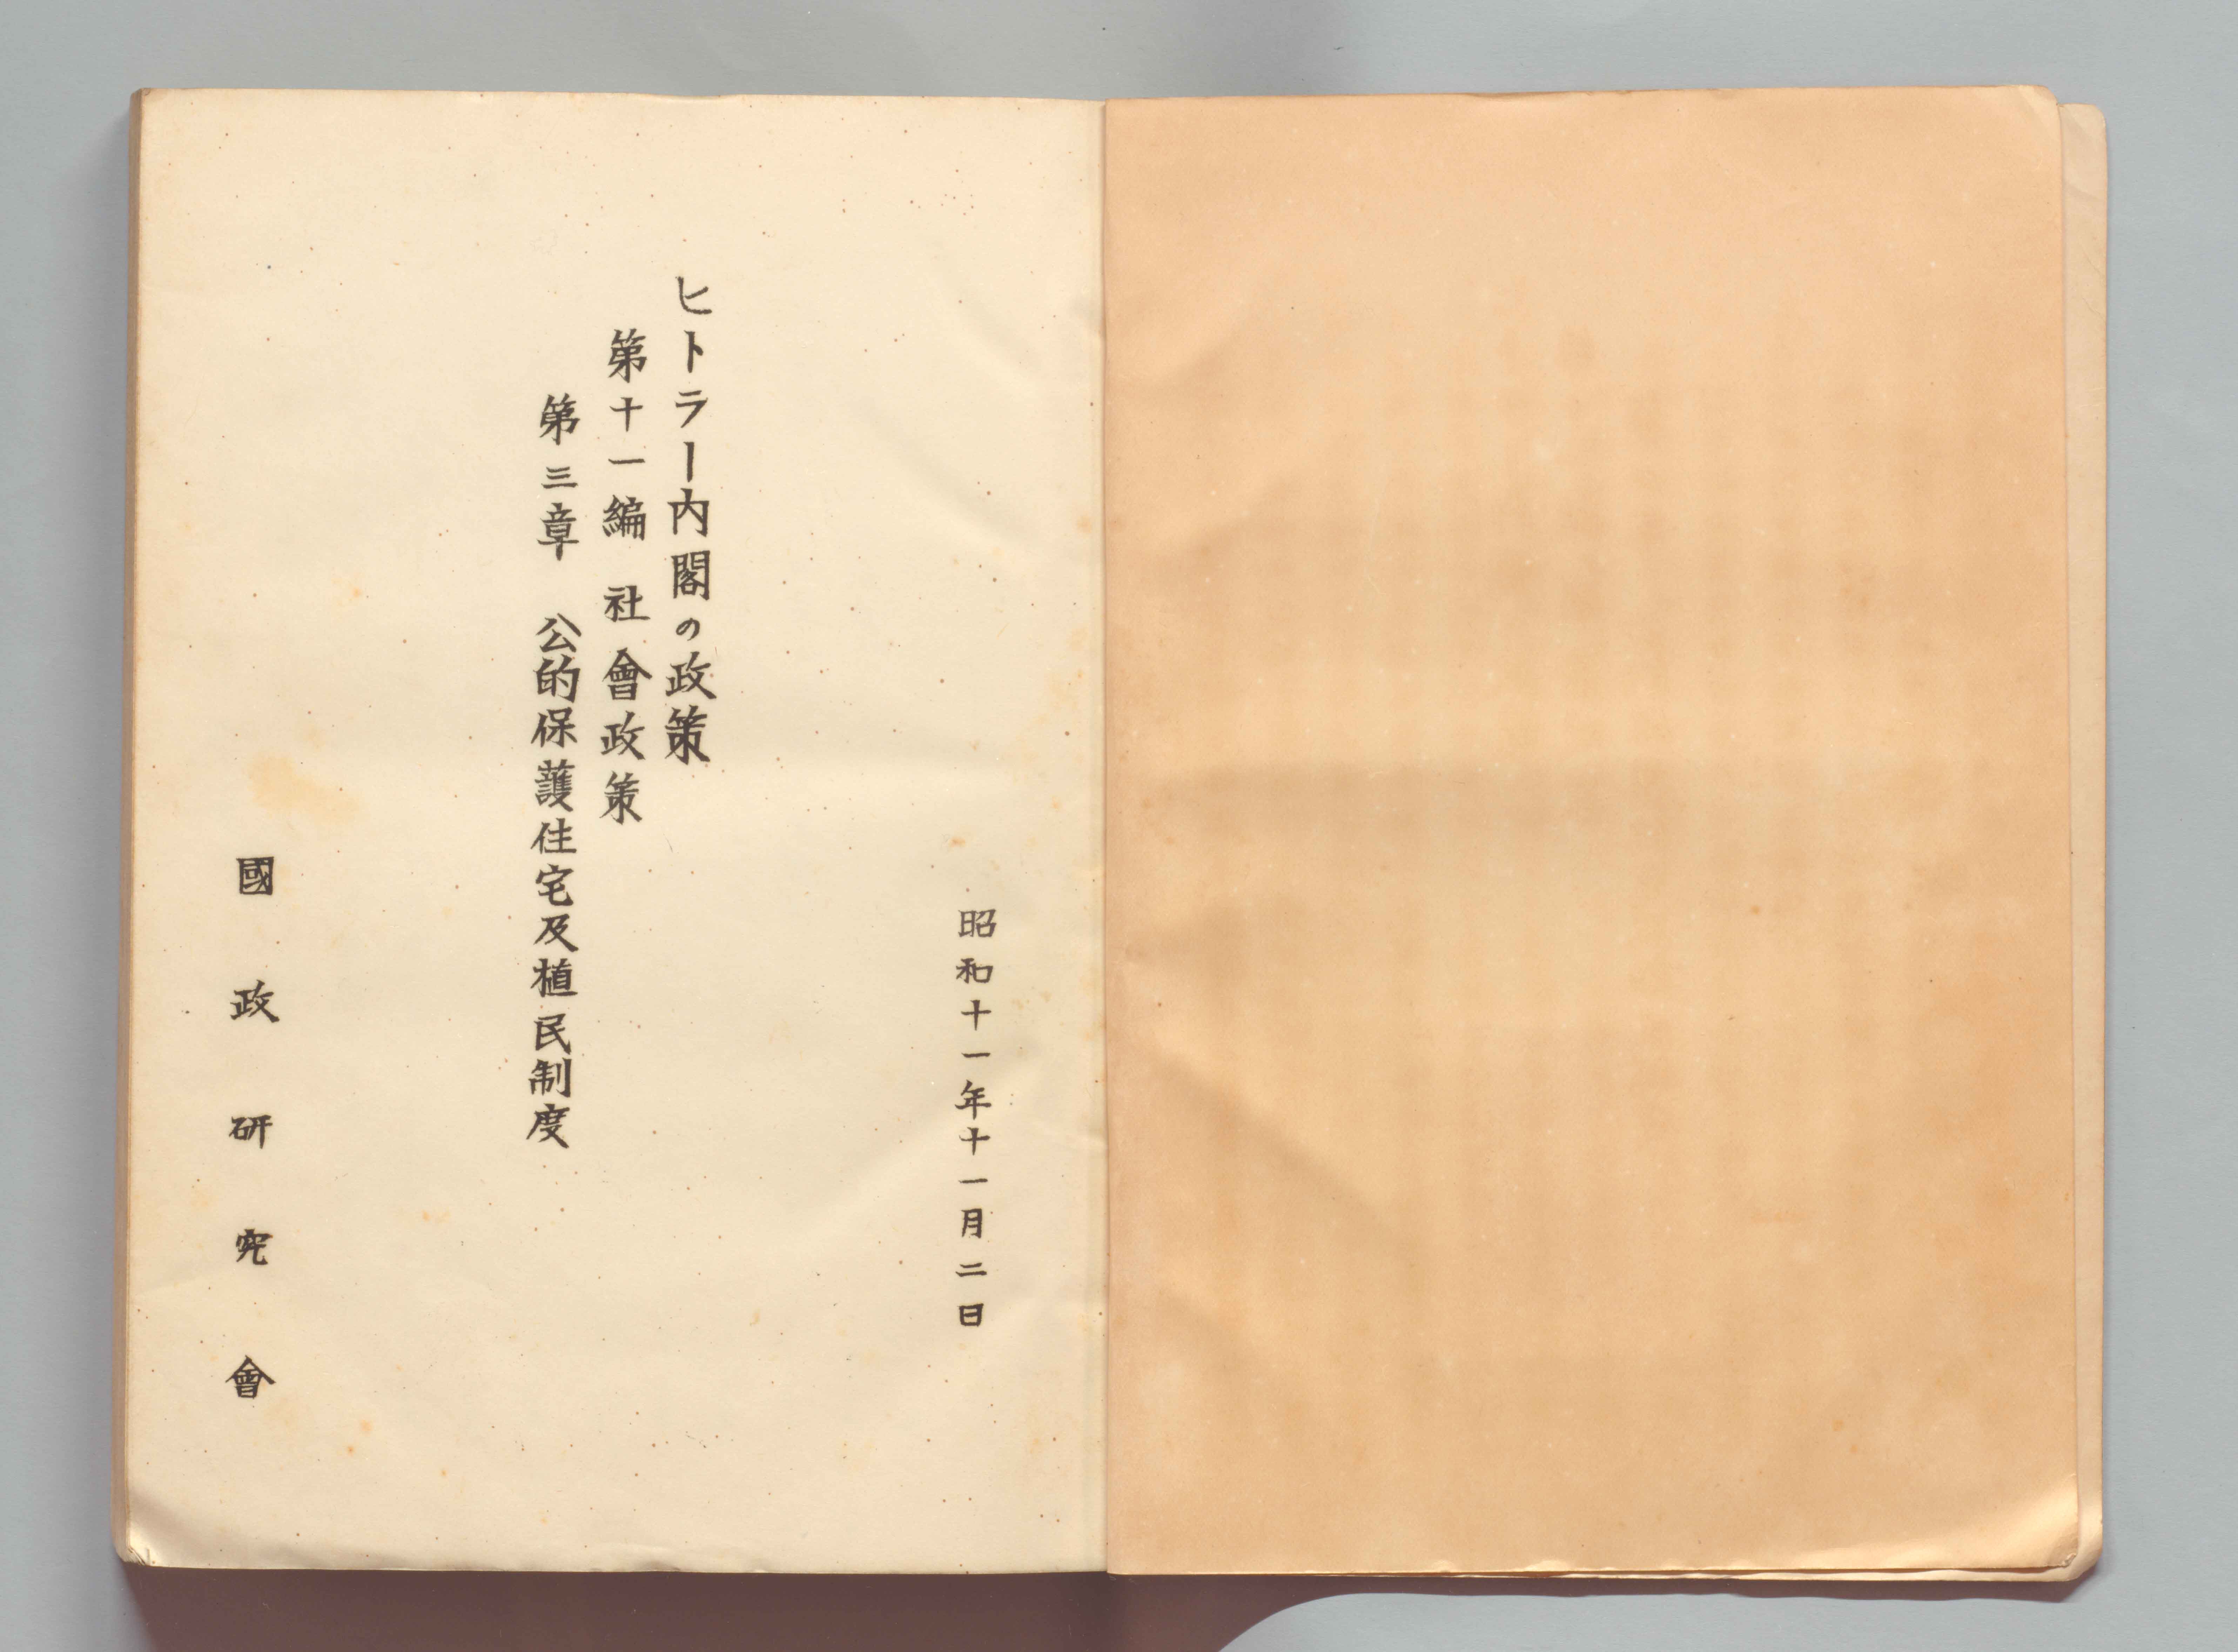 昭和十一年十一月二日
ヒトラー内閣の政策
第十一編　社會政策
第三章　公的保護住宅及植民制度
國政研究會